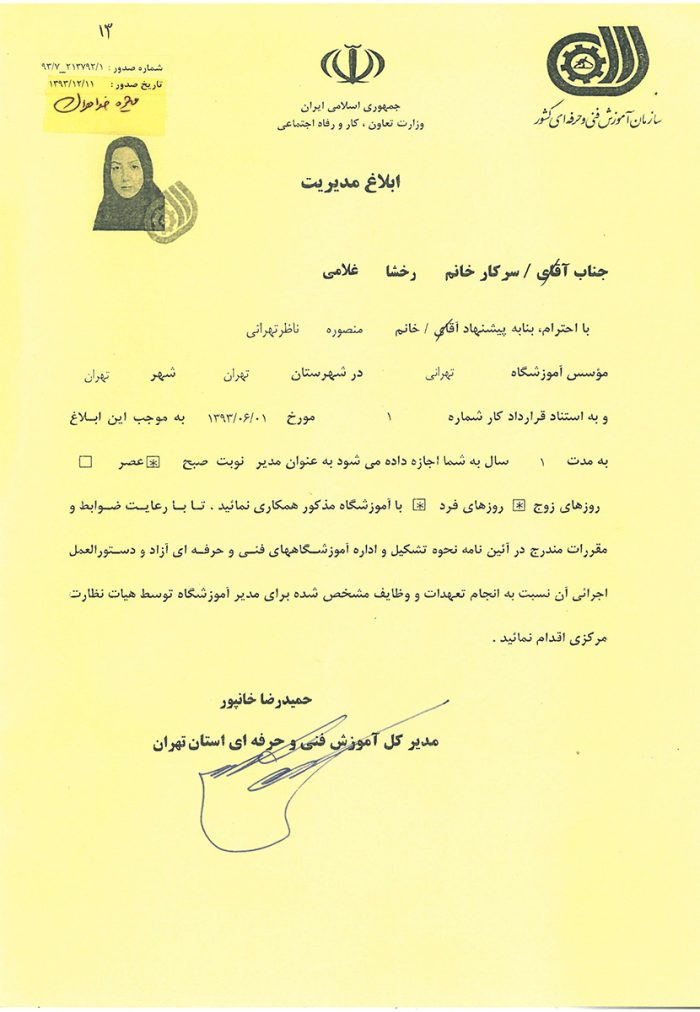 ۱۳
شماره صدور : ۹۳/۷_۲۱۳۷۹۲/۱
تاریخ صدور : ۱۳۹۳/۱۲/۱۱
جمهوری اسلامی ایران
وزارت تعاون ، کار و رفاه اجتماعی
سازمان آموزش فنی و حرفه ای کشور
ابلاغ مدیریت
جناب آقای / سرکار خانم رخشا غلامی
با احترام، بنابه پیشنهاد آقای / خانم منصوره ناظرتهرانی
مؤسس آموزشگاه تهرانی در شهرستان تهران شهر تهران
و به استناد قرارداد کار شماره ۱ مورخ ۱۳۹۳/۰۶/۰۱ به موجب این ابلاغ
به مدت ۱ سال به شما اجازه داده می شود به عنوان مدیر نوبت صبح عصر
روزهای زوج روزهای فرد با آموزشگاه مذکور همکاری نمائید ، تا با رعایت ضوابط و
مقررات مندرج در آئین نامه نحوه تشکیل و اداره آموزشگاههای فنی و حرفه ای آزاد و دستورالعمل
اجرائی آن نسبت به انجام تعهدات و وظایف مشخص شده برای مدیر آموزشگاه توسط هیات نظارت
مرکزی اقدام نمائید .
حمیدرضا خانپور
مدیر کل آموزش فنی و حرفه ای استان تهران